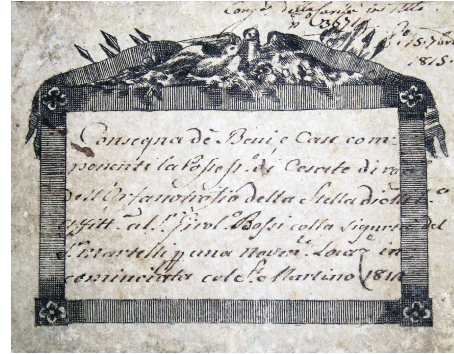 N.° 3671
15. 7bre
1815.
Consegna de Beni, e Case com-
ponenti la Possess.e di Cesate di
dell'Orfanotrofio della Stella
affitt. al S.r Girol.o Bossi colla Sigurtà del
S.r Martelli p una Noven.e Locaz.e in-
cominciata col S. Martino 1814